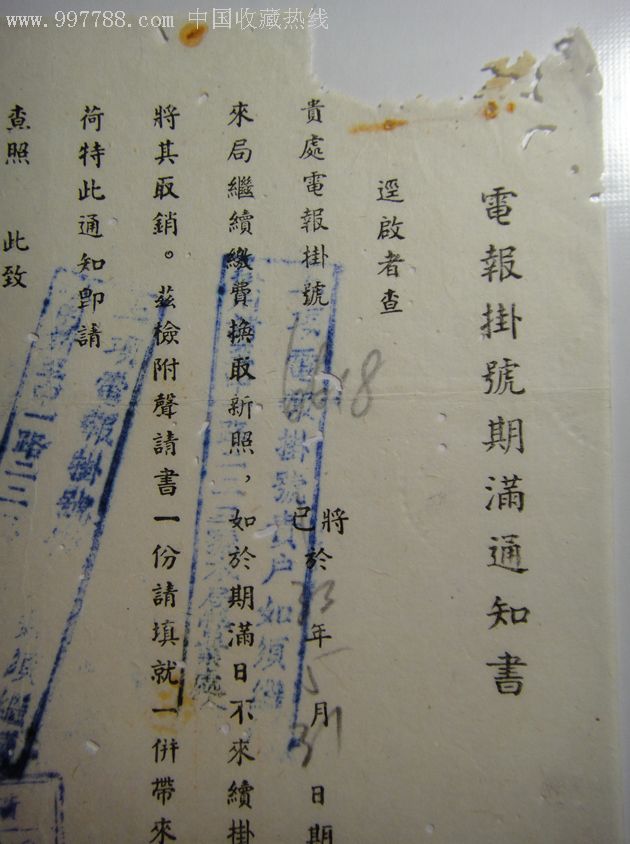 www.997788.com 中国收藏热线
電報掛號期滿通知書
逕啟者查
貴處電報掛號 將已於 年 5 月 31 日期
來局繼續繳費換取新照，如於期滿日不來續掛
將其取銷。茲檢附聲請書一份請填就一併帶來
荷特此通知卽請
查照 此致
電報掛號貴户如須繼
項電報掛號
路二三
須繼